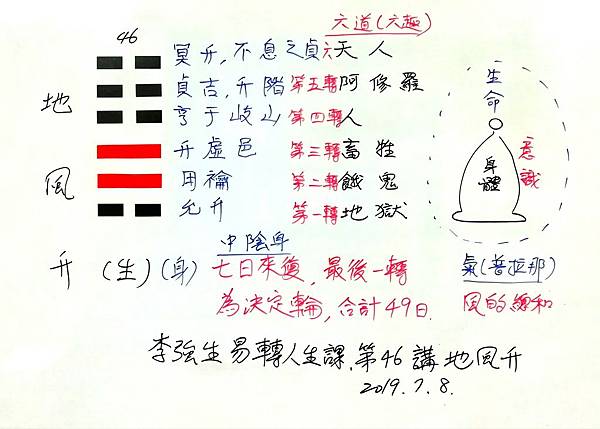 六道(六趣)
46
冥升,不息之貞 六天人
貞吉,升階 第五轉 阿修羅
亨于岐山 第四轉 人
升虛邑 第三轉 畜牲
用禴 第二轉 餓鬼
允升 第一轉 地獄
地
風
升 (生) (身)
中陰身
七日來復,最後一轉
為決定輪,合計49日.
生命
身體
意識
氣(普拉那)
風的總和
李強生易轉人生課.第46講地風升
2019.7.8.